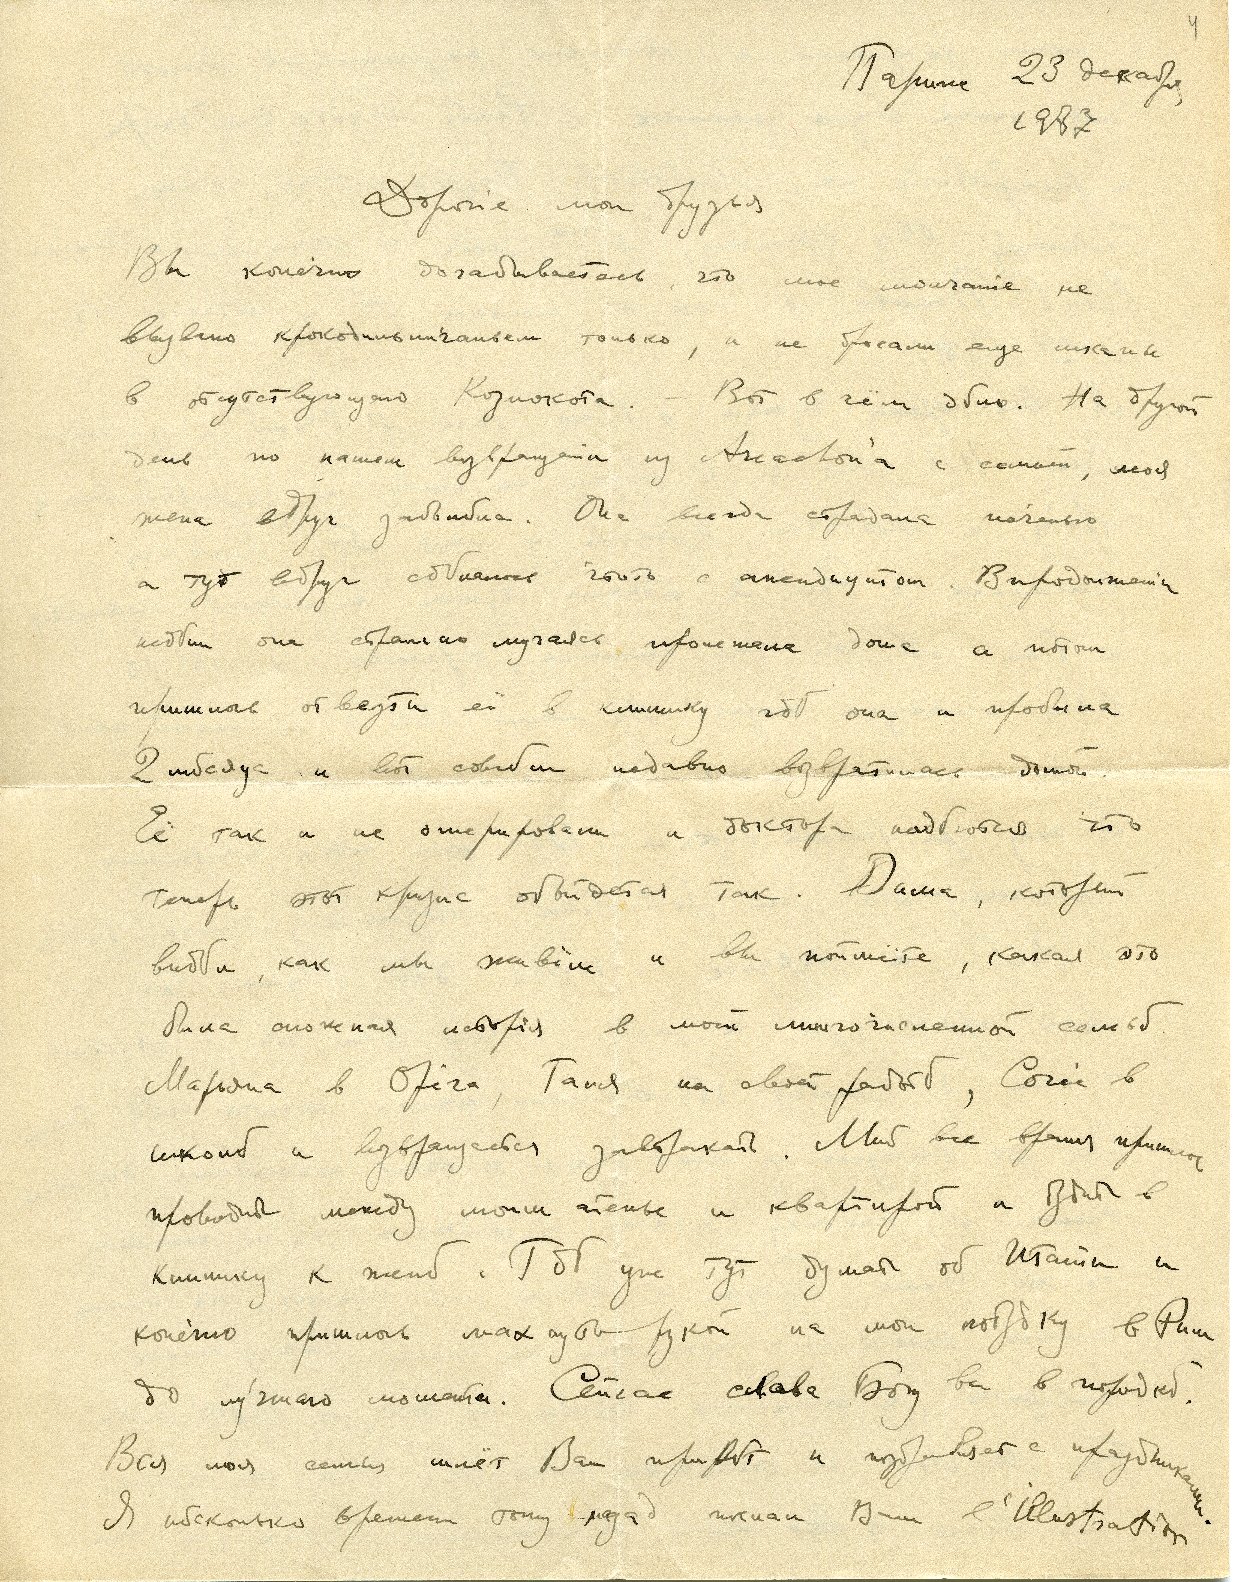 4
Париж 23 декабря
1937
Дорогіе мои друзья
Вы конечно догадываетесь, что мое молчаніе не
вызвано крокодильничаньем только, и не бросали еще шкапы
в отсутствующаго Козлокота. – Вот в чём дѣло. На другой
день по нашем возвращеніи из Arcachon'а с семьей, моя
жена вдруг заболѣла. Она всегда страдала печенью
а тут вдруг сдѣлалось что то с апендицитом. В продолженіи
недѣли она страшно мучаясь пролежала дома а потом
пришлось отвезти её в клинику гдѣ она и пробыла
2 мѣсяца и вот совсѣм недавно возвратилась домой.
Её так и не оперировали и доктора надѣются что
теперь этот кризис обойдется так. Дима, который
видѣл, как мы живём и вы поймёте, какая это
была сложная исторія в моей многочисленной семьѣ.
Марьяна в Opéra, Таня на своей работѣ, Сочіе в
школѣ и возвращается завтракать. Мнѣ все время пришлось
проводить между моим ателье и квартирой и ѣздить в
клинику к женѣ. Гдѣ уже тут думать об Италіи и
конечно пришлось махнуть рукой на мою поѣздку в Рим
до лучшаго момента. Сейчас слава Богу все в порядкѣ.
Вся моя семья шлёт Вам привѣт и поздравляет с праздниками.
Я нѣсколько времени тому назад послал Вам l'illustration